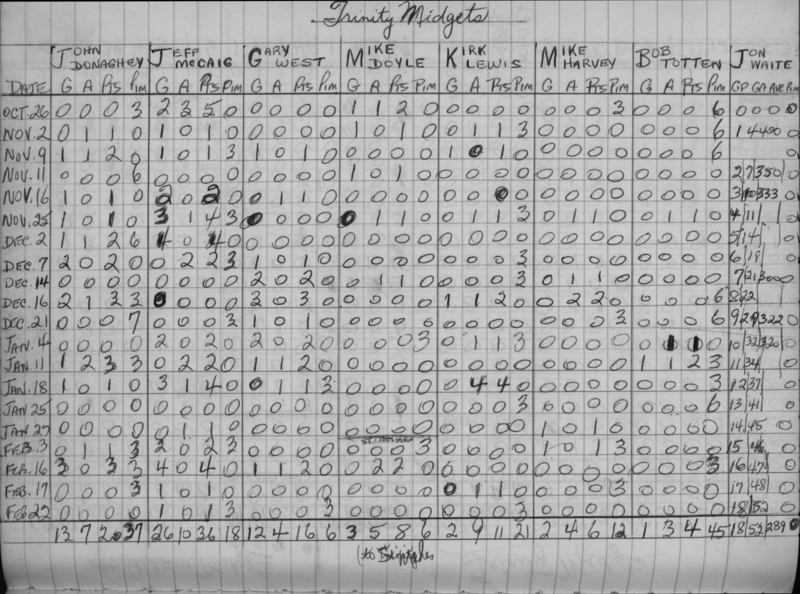 Trinity Midgets
JOHN DONAGHEY JEFF McCAIG GARY WEST MIKE DOYLE KIRK LEWIS MIKE HARVEY BOB TOTTEN JON WAITE
DATE G A Pts Pim G A Pts Pim G A Pts Pim G A Pts Pim G A Pts Pim G A Pts Pim G A Pts Pim GP GA AVE Pim
OCT.26 0 0 0 3 2 3 5 0 0 0 0 0 1 1 2 0 0 0 0 0 0 0 0 3 0 0 0 6 0 0 0 0
NOV.2 0 1 1 0 1 0 1 0 0 0 0 0 1 0 1 0 0 1 1 3 0 0 0 0 0 0 0 6 1 4 400 0
NOV.9 1 1 2 0 1 0 1 3 1 0 1 0 0 0 0 0 1 0 1 0 0 0 0 0 0 0 0 6
NOV.11 0 0 0 6 0 0 0 0 0 0 0 0 1 0 1 0 0 0 0 0 0 0 0 0 0 0 0 0 2 7 350 0
NOV.16 1 0 1 0 2 0 2 0 0 1 1 0 0 0 0 0 0 0 0 0 0 0 0 0 0 0 0 0 3 10 333
NOV.25 1 0 1 0 3 1 4 3 0 0 0 0 0 1 1 0 0 1 1 3 0 1 1 0 0 1 1 0 4 11
DEC.2 1 1 2 6 4 0 4 0 0 0 0 0 0 0 0 0 0 0 0 0 0 0 0 0 0 0 0 0 5 14
DEC.7 2 0 2 0 0 2 2 3 1 0 1 0 0 0 0 0 0 0 0 3 0 0 0 0 0 0 0 0 6 19
DEC.14 0 0 0 0 0 0 0 0 2 0 2 0 0 1 1 0 0 0 0 3 0 1 1 0 0 0 0 0 7 21 300 0
DEC.16 2 1 3 3 0 0 0 0 3 0 3 0 0 0 0 0 1 1 2 0 0 2 2 0 0 0 0 6 8 22
DEC.21 0 0 0 7 0 0 0 3 1 0 1 0 0 0 0 0 0 0 0 0 0 0 0 3 0 0 0 6 9 29 322 0
JAN.4 0 0 0 0 2 0 2 0 2 0 2 0 0 0 0 3 0 1 1 3 0 0 0 0 0 0 10 32 320
JAN.11 1 2 3 3 0 2 2 0 1 1 2 0 0 0 0 0 0 0 0 0 0 0 0 0 1 1 2 3 11 34
JAN.18 1 0 1 0 3 1 4 0 0 1 1 3 0 0 0 0 0 4 4 0 0 0 0 0 0 0 0 3 12 37
JAN 25 0 0 0 0 0 0 0 0 0 0 0 0 0 0 0 0 0 0 0 3 0 0 0 0 0 0 0 6 13 41
JAN 27 0 0 0 0 0 1 1 0 0 0 0 0 0 0 0 0 0 0 0 0 1 0 1 0 0 0 0 0 14 45
FEB.3 0 1 1 3 2 0 2 3 0 0 0 0 0 0 0 3 0 0 0 0 1 0 1 3 0 0 0 0 15 46
FEB.16 3 0 3 3 4 0 4 0 1 1 2 0 0 2 2 0 0 0 0 0 0 0 0 0 0 0 0 3 16 47
FEB.17 0 0 0 3 1 0 1 0 0 0 0 0 0 0 0 0 0 1 1 0 0 0 0 3 0 0 0 0 17 48
FEB 22 0 0 0 0 1 0 1 3 0 0 0 3 0 0 0 0 0 0 0 3 0 0 0 0 0 0 0 0 18 52
13 7 20 37 26 10 36 18 12 4 16 6 3 5 8 6 2 9 11 21 2 4 6 12 1 3 4 45 18 52 289 0